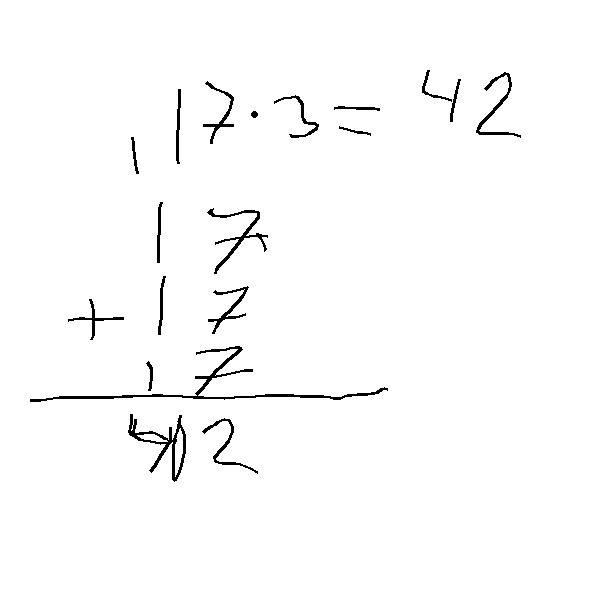 17·3=42
1
17
+17
17
42